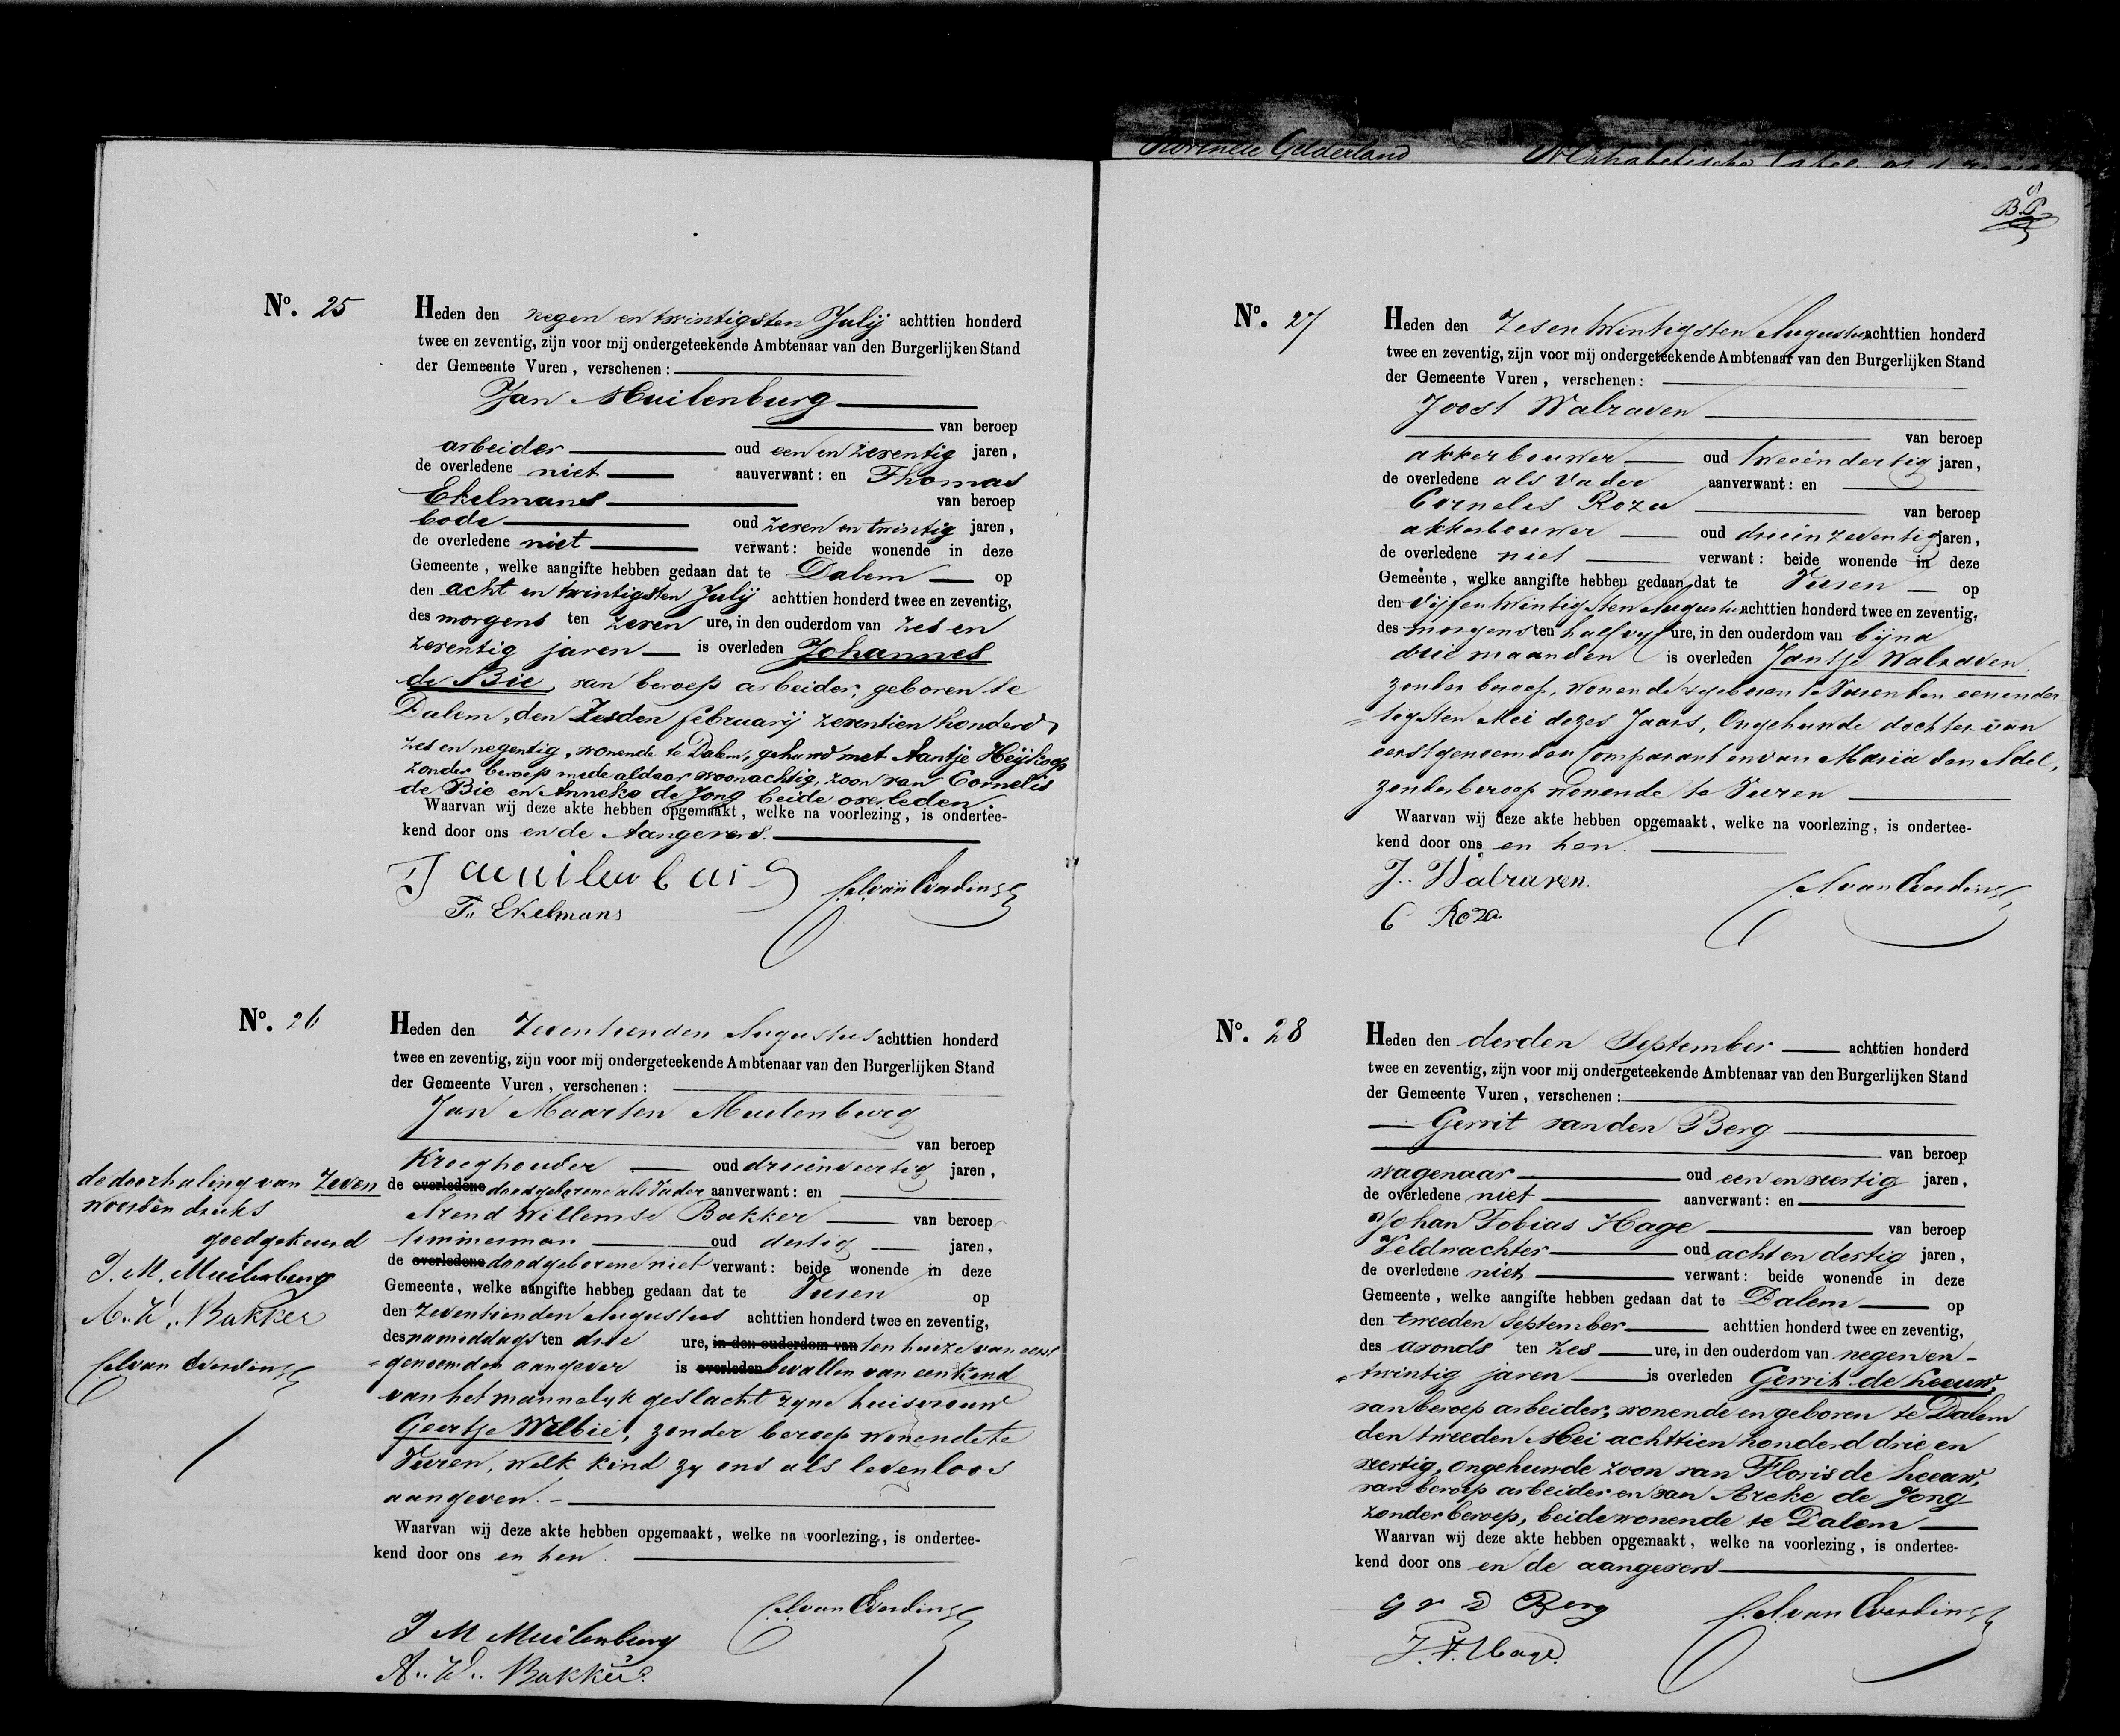 Provincie Gelderland
Alphabetische tafel
No. 25
Heden den negen en twintigsten Julij achttien honderd
twee en zeventig, zijn voor mij ondergeteekende Ambtenaar van den Burgerlijken Stand
der Gemeente Vuren, verschenen:
Jan Muilenburg
van beroep
arbeider oud een en zeventig jaren,
de overledene niet aanverwant: en Thomas
Ekelmans van beroep
bode oud zeven en twintig jaren,
de overledene niet verwant: beide wonende in deze
Gemeente, welke aangifte hebben gedaan dat te Dalem op
den acht en twintigsten Julij achttien honderd twee en zeventig,
des morgens ten zeven ure, in den ouderdom van zes en
zeventig jaren is overleden Johannes
de Bie, van beroep arbeider, geboren te
Dalem, den Zesden februarij zeventien honderd
zes en negentig, wonende te Dalem, gehuwd met Aantje Heijkoop
zonder beroep mede aldaar woonachtig, zoon van Cornelis
de Bie en Anneke de Jong beide overleden.
Waarvan wij deze akte hebben opgemaakt, welke na voorlezing, is ondertee-
kend door ons en de Aangevers.
T. Ekelmans
No. 26
Heden den Zeventienden Augustus achttien honderd
twee en zeventig, zijn voor mij ondergeteekende Ambtenaar van den Burgerlijken Stand
der Gemeente Vuren, verschenen:
Jan Maarten Muilenburg
van beroep
Kroeghouder oud drieënveertig jaren,
de overledene doodgeborene als Vader aanverwant: en
Arend Willemse Bakker van beroep
timmerman oud dertig jaren,
de overledene doodgeborene niet verwant: beide wonende in deze
Gemeente, welke aangifte hebben gedaan dat te Vuren op
den Zeventienden Augustus achttien honderd twee en zeventig,
des namiddags ten drie ure, in den ouderdom van ten huize van eerst
genoemden aangever is overleden bevallen van een kind
van het mannelyk geslacht zyne huisvrouw
Geertje Welbie, zonder beroep wonende te
Vuren, welk kind zy ons als levenloos
aangeven.
Waarvan wij deze akte hebben opgemaakt, welke na voorlezing, is ondertee-
kend door ons en hen.
J M Muilenburg
A.. W.. Bakker
de doorhaling van Zeven
woorden druks
goedgekeurd
J. M. Muilenburg
A.. W.. Bakker
No. 27
Heden den Zesentwintigsten Augustus achttien honderd
twee en zeventig, zijn voor mij ondergeteekende Ambtenaar van den Burgerlijken Stand
der Gemeente Vuren, verschenen:
Joost Walraven
van beroep
akkerbouwer oud tweeëndertig jaren,
de overledene als Vader aanverwant: en
Cornelis Roza van beroep
akkerbouwer oud drieënzeventig jaren,
de overledene niet verwant: beide wonende in deze
Gemeente, welke aangifte hebben gedaan dat te Vuren op
den Vijfentwintigsten Augustus achttien honderd twee en zeventig,
des morgens ten half vyf ure, in den ouderdom van bijna
drie maanden is overleden Jantje Walraven,
zonder beroep, wonende & geboren te Vuren den eenender
tigsten Mei dezes Jaars, Ongehuwde dochter van
eerstgenoemden Comparant en van Maria den Adel,
zonder beroep wonende te Vuren
Waarvan wij deze akte hebben opgemaakt, welke na voorlezing, is ondertee-
kend door ons en hen.
J. Walraven.
C Roza
No. 28
Heden den derden September achttien honderd
twee en zeventig, zijn voor mij ondergeteekende Ambtenaar van den Burgerlijken Stand
der Gemeente Vuren, verschenen:
Gerrit van den Berg
van beroep
wagenaar oud een en veertig jaren,
de overledene niet aanverwant: en
Johan Tobias Hage van beroep
Veldwachter oud acht en dertig jaren,
de overledene niet verwant: beide wonende in deze
Gemeente, welke aangifte hebben gedaan dat te Dalem op
den tweeden September achttien honderd twee en zeventig,
des avonds ten zes ure, in den ouderdom van negen en-
twintig jaren is overleden Gerrit de Leeuw,
van beroep arbeider, wonende en geboren te Dalem
den tweeden Mei achttien honderd drie en
veertig, ongehuwde zoon van Floris de Leeuw,
van beroep arbeider en van Areke de Jong
zonder beroep, beide wonende te Dalem
Waarvan wij deze akte hebben opgemaakt, welke na voorlezing, is ondertee-
kend door ons en de aangevers
G v D Berg
J. T. Hage.